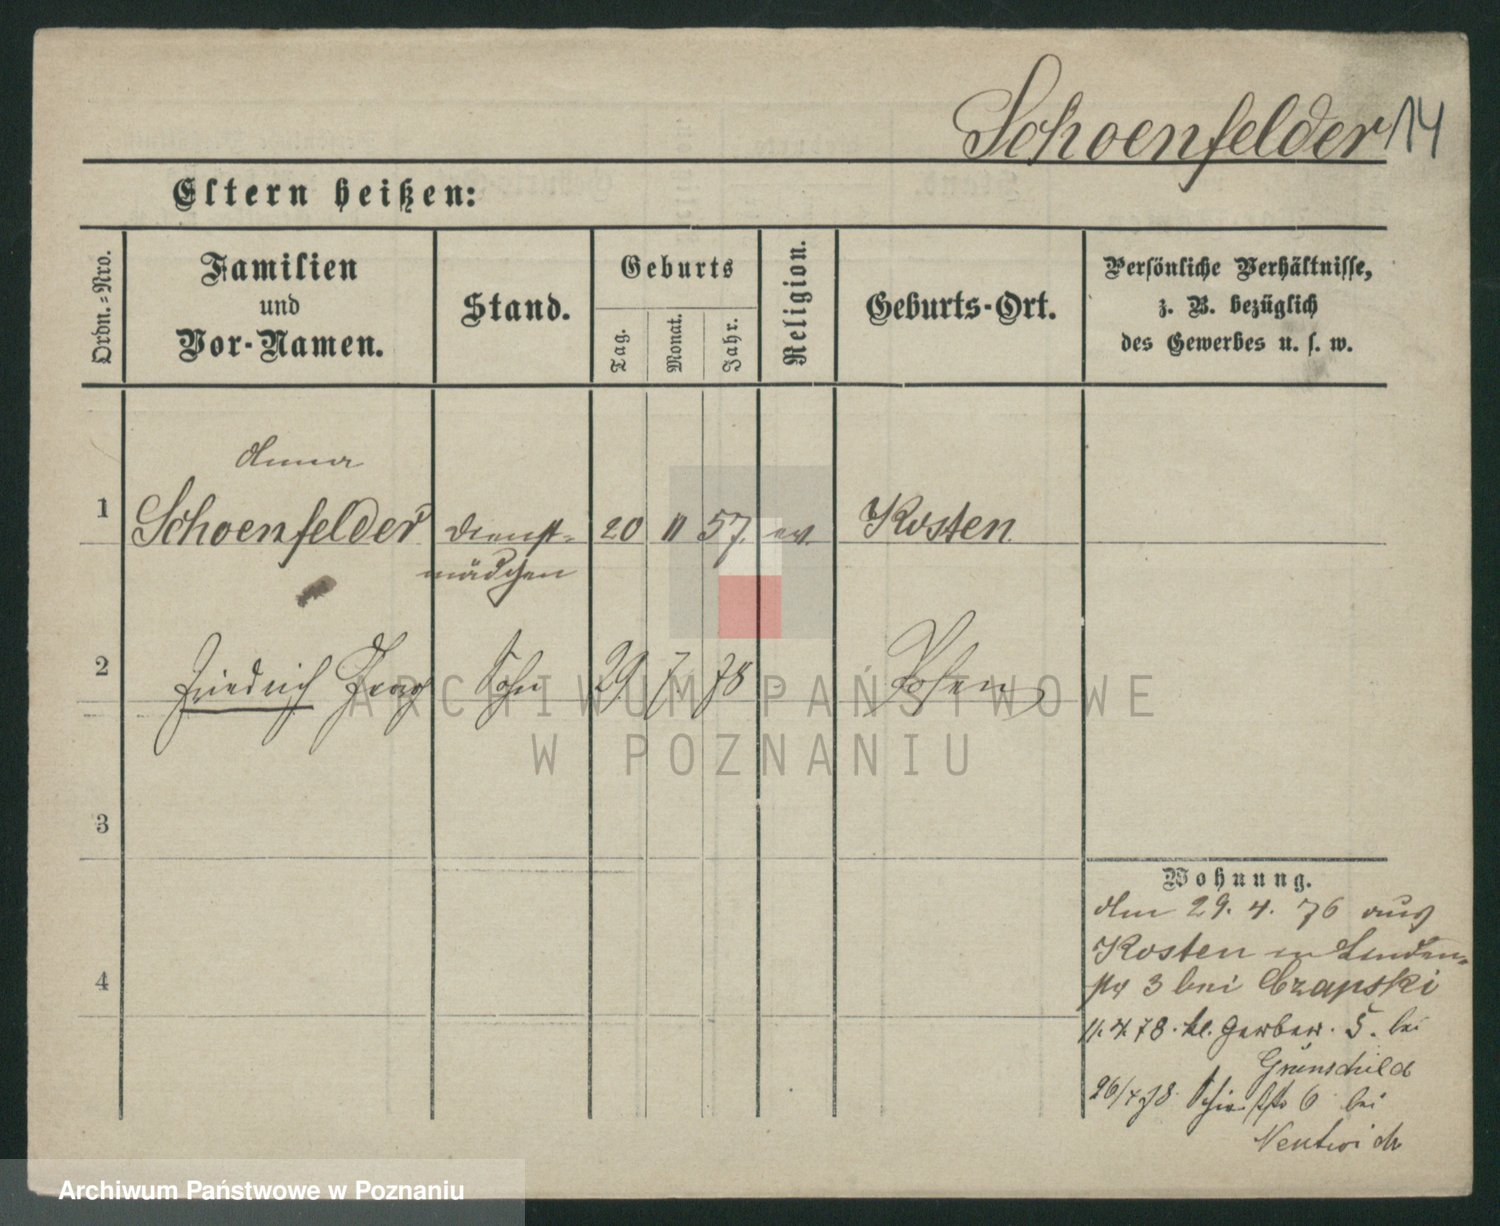 Schoenfelder 14
Eltern heißen:
Ordn.-Nro.
Familien
und
Vor-Namen.
Stand.
Geburts
Tag.
Monat.
Jahr.
Religion.
Geburts-Ort.
Persönliche Verhältnisse,
z. B. bezüglich
des Gewerbes u. s. w.
Anna
1 Schoenfelder Dienst- 20 11 57. ev. Kosten
mädchen
2 Friedrich Sohn 29. 7. 78 Posen
3
4
Wohnung.
Am 29. 4. 76 aus
Kosten Linden-
str 3 bei Czapski
11. 4. 78. kl. Gerber. 5. bei
Grünschild
26/4 78. 6 bei
Neutwich
ARCHIWUM PAŃSTWOWE
W POZNANIU
Archiwum Państwowe w Poznaniu